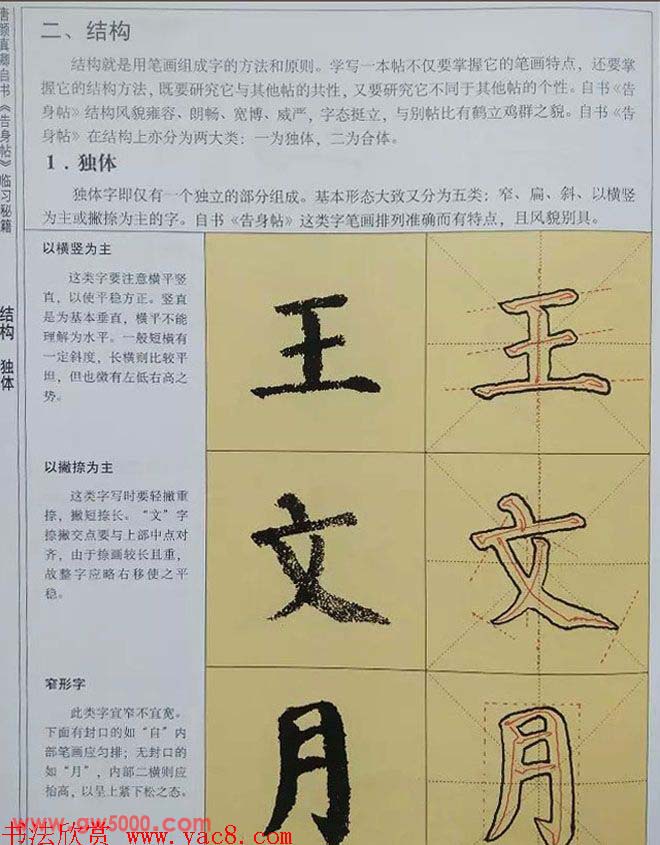 唐颜真卿自书《告身帖》临习秘籍
结构 独体
二、结构
结构就是用笔画组成字的方法和原则。学写一本帖不仅要掌握它的笔画特点，还要掌
握它的结构方法，既要研究它与其他帖的共性，又要研究它不同于其他帖的个性。自书《告
身帖》结构风貌雍容、朗畅、宽博、威严，字态挺立，与别帖比有鹤立鸡群之貌。自书《告
身帖》在结构上亦分为两大类：一为独体，二为合体。
1．独体
独体字即仅有一个独立的部分组成。基本形态大致又分为五类：窄、扁、斜、以横竖
为主或撇捺为主的字。自书《告身帖》这类字笔画排列准确而有特点，且风貌别具。
以横竖为主
这类字要注意横平竖
直，以使平稳方正。竖直
是为基本垂直，横平不能
理解为水平。一般短横有
一定斜度，长横则比较平
坦，但也微有左低右高之
势。
王 王
以撇捺为主
这类字写时要轻撇重
捺，撇短捺长。“文”字
捺撇交点要与上部中点对
齐，由于捺画较长且重，
故整字应略右移使之平
稳。
文 文
窄形字
此类字宜窄不宜宽。
下面有封口的如“自”内
部笔画应匀排；无封口的
如“月”，内部二横则应
抬高，以呈上紧下松之态。
月 月
www.gw5000.com
书法欣赏 www.yac8.com